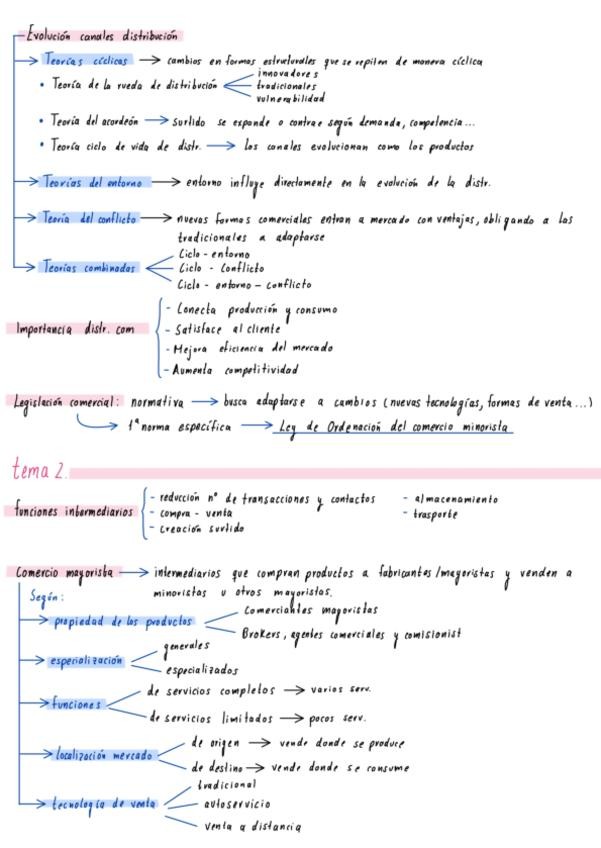 Evolución canales distribución
Teorías cíclicas → cambios en formas estructurales que se repiten de manera cíclica
• Teoría de la rueda de distribución
innovadores
tradicionales
vulnerabilidad
• Teoría del acordeón → surtido se expande o contrae según demanda, competencia...
• Teoría ciclo de vida de distr. → los canales evolucionan como los productos
Teorías del entorno → entorno influye directamente en la evolución de la distr.
Teoría del conflicto → nuevas formas comerciales entran a mercado con ventajas, obligando a las
tradicionales a adaptarse
Teorías combinadas
Ciclo - entorno
Ciclo - Conflicto
Ciclo - entorno - conflicto
Importancia distr. com
- Conecta producción y consumo
- Satisface al cliente
- Mejora eficiencia del mercado
- Aumenta competitividad
Legislación comercial: normativa → busca adaptarse a cambios (nuevas tecnologías, formas de venta...)
1ª norma específica → Ley de Ordenación del comercio minorista
tema 2.
funciones intermediarios
- reducción nº de transacciones y contactos
- compra - venta
- creación surtido
- almacenamiento
- trasporte
Comercio mayorista → intermediarios que compran productos a fabricantes/mayoristas y venden a
minoristas u otros mayoristas.
Según:
propiedad de los productos
Comerciantes mayoristas
Brokers, agentes comerciales y comisionist
especialización
generales
especializados
funciones
de servicios completos → varios serv.
de servicios limitados → pocos serv.
localización mercado
de origen → vende donde se produce
de destino → vende donde se consume
tecnología de venta
tradicional
autoservicio
venta a distancia